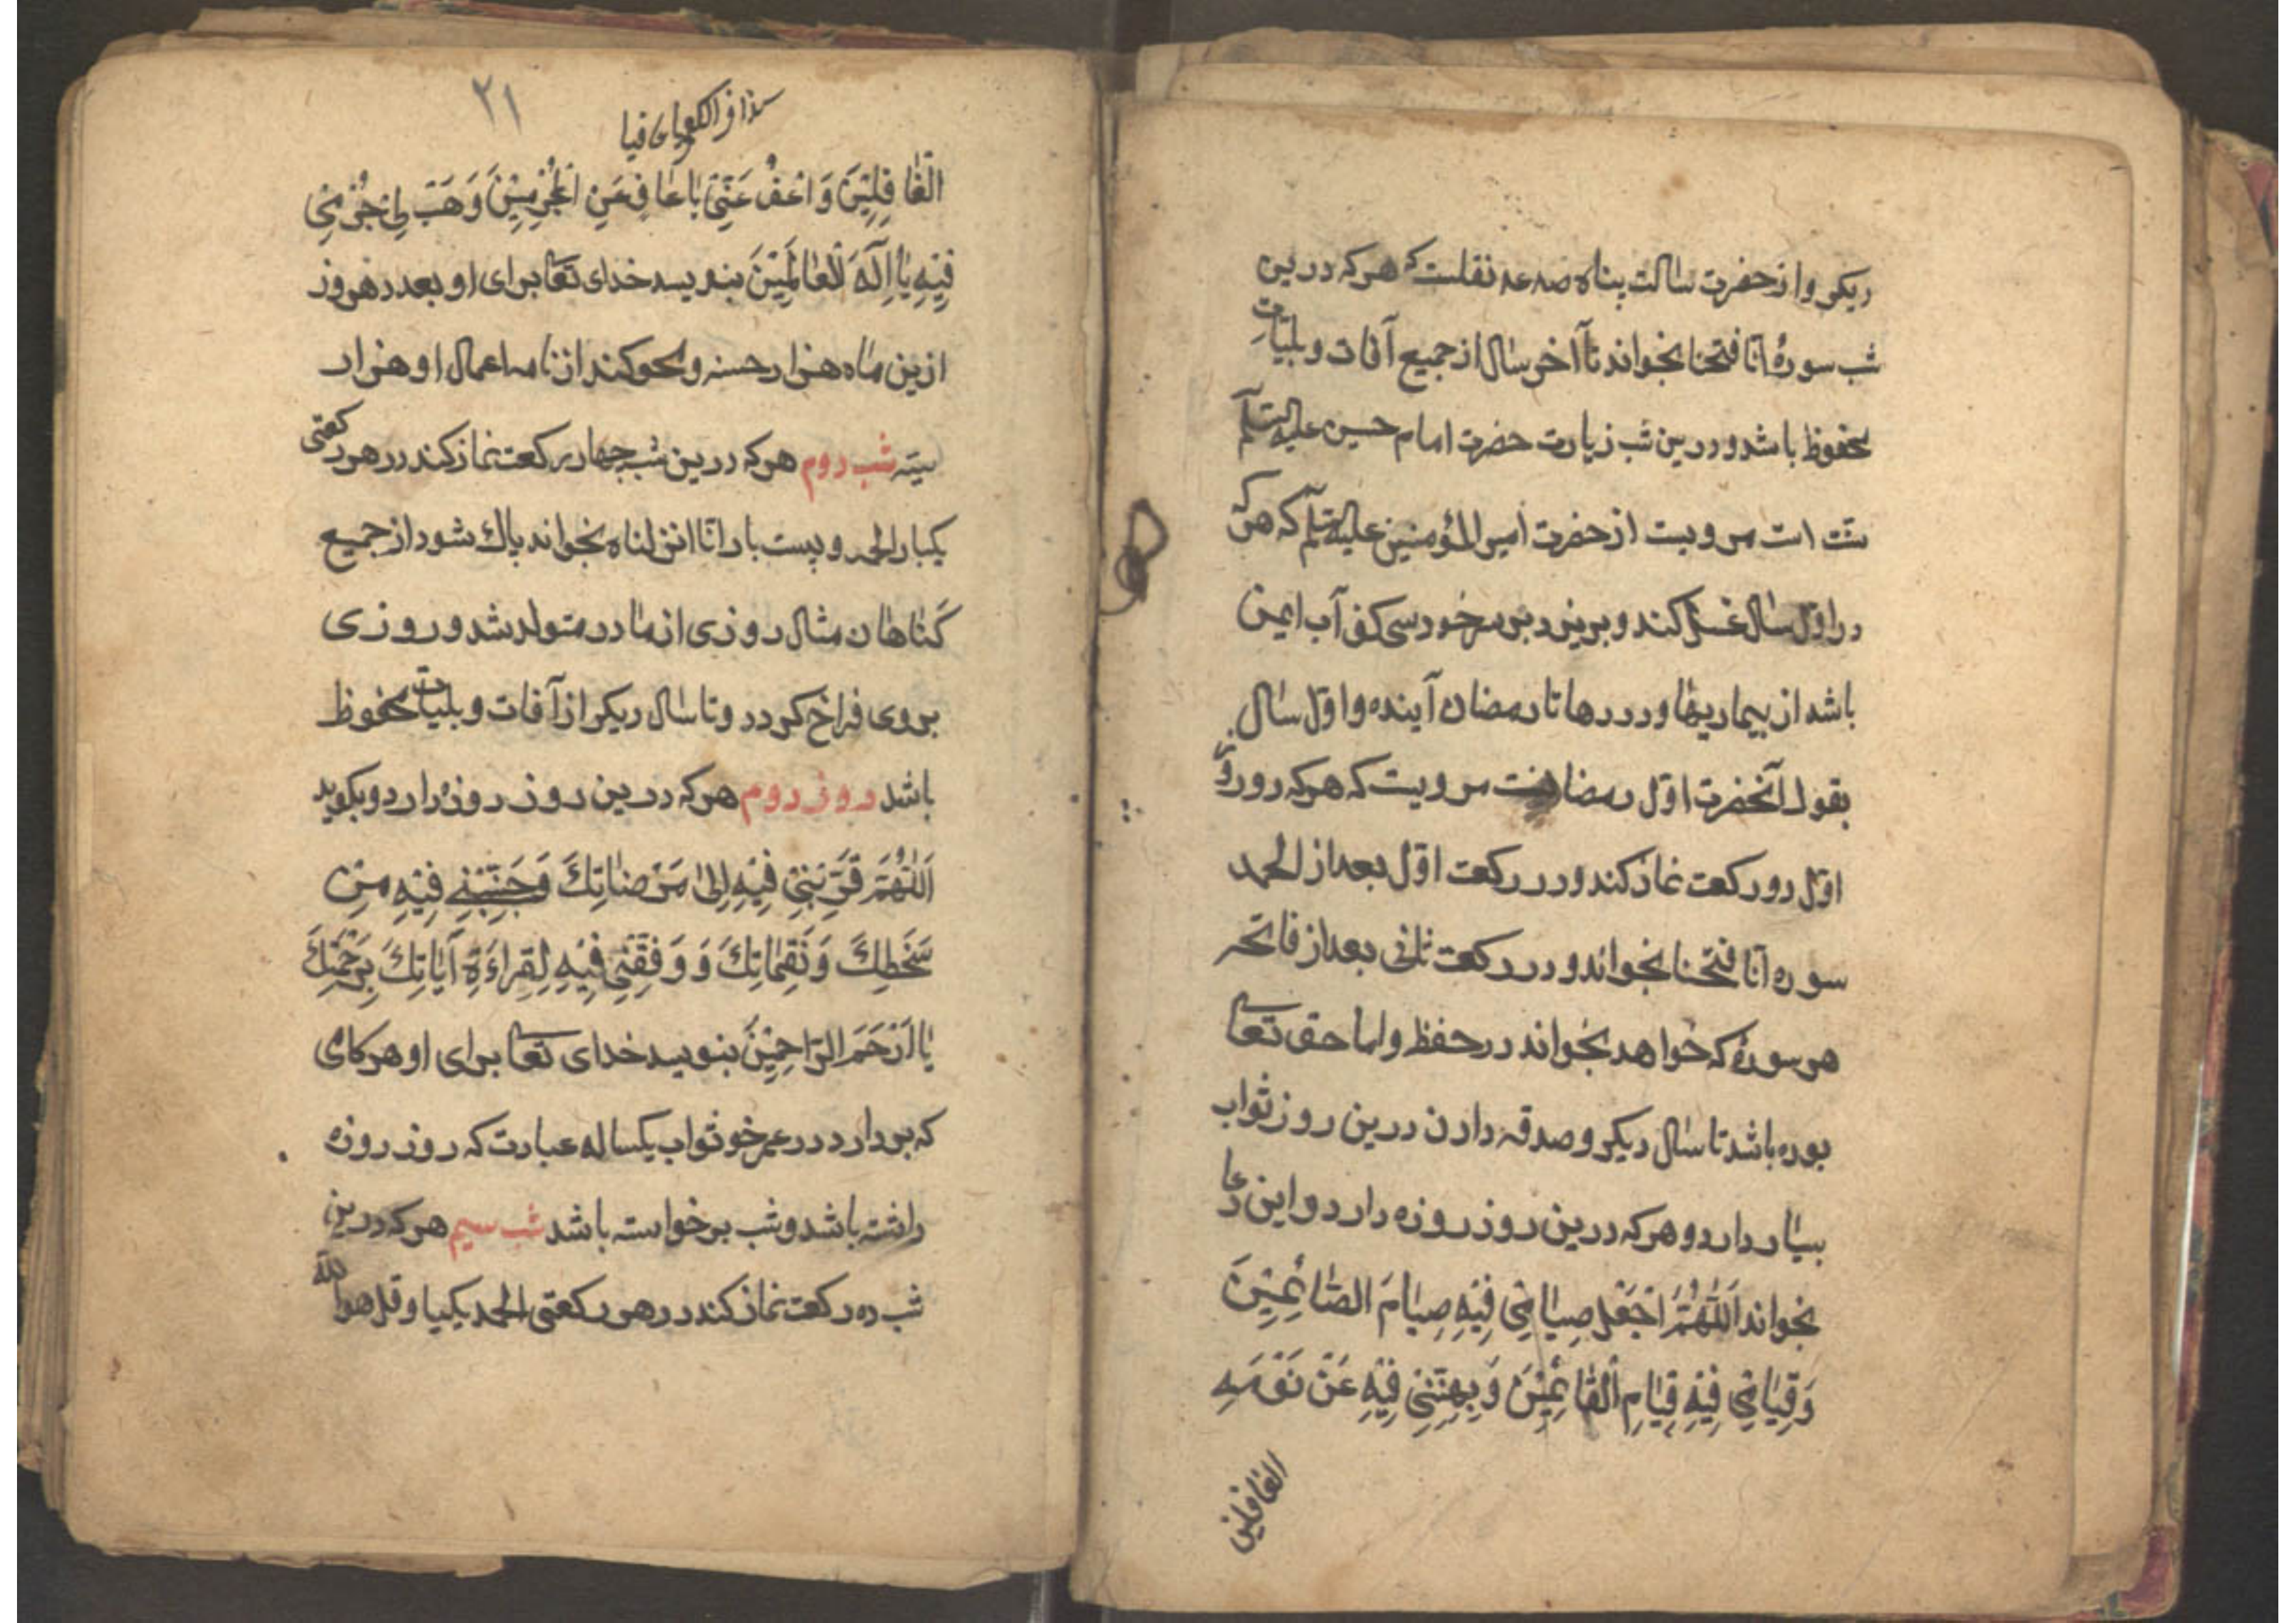 دیکر و از حضرت رسالت پناه صه عه نقلست که هر که درین
شب سورهٔ انا فتحنا بخواند تا آخر سال از جمیع آفات و بلیات
محفوظ باشد و درین شب زیارت حضرت امام حسین علیه السلم
سنت است مرویست از حضرت امیر المؤمنین علیه السلم که هر که
در اوّل سال غسل کند و بریزد بر سر خود سی کف آب ایمن
باشد از بیماریها و دردها تا رمضان آینده و اوّل سال
بقول آنحضرت اوّل رمضانست مرویست که هر که در روز
اوّل دو رکعت نماز کند و در رکعت اوّل بعد از الحمد
سوره انا فتحنا بخواند و در رکعت ثانی بعد از فاتحه
هر سورهٔ که خواهد بخواند در حفظ و اما حق تعالی
بوده باشد تا سال دیکر و صدقه دادن درین روز ثواب
بسیار دارد و هر که درین روز روزه دارد و این دعا
بخواند اَللّٰهُمَّ اجْعَلْ صِیٰامِی فِیْهِ صِیٰامَ الصّٰائِمِیْنَ
وَ قِیٰامِی فِیْهِ قِیٰامِ الْقٰائِمِیْنَ وَ نَبِهْنِی فِیْهِ عَنْ نَوْمَهِ
الغافلین
٢١
الْغٰافِلِیْنَ وَ اعْفُ عَنِّی یٰا عٰافِ عَنِ الْمُجْرِمِیْنَ وَ هَبْ لِی جُرْمِی
فِیْهِ یٰا اِلٰهَ الْعٰالَمِیْنَ بنویسد خدای تعالی برای او بعدد هر روز
ازین ماه هزار حسنه و محو کند از نامه اعمال او هزار
سیئه شب دوم هر که درین شب چهار رکعت نماز کند در هر رکعتی
یکبار الحمد و بیست بار انا انزلناه بخواند پاك شود از جمیع
کناهان مثال روزی از مادر متولد شد و روزی
بروی فراخ کردد و تا سال دیکر از آفات و بلیات محفوظ
باشد روز دوم هر که درین روز روزه دارد و بکوید
اَللّٰهُمَّ قَرِّبْنِی فِیْهِ اِلیٰ مَرْضٰاتِكَ وَ جَنِّبْنِی فِیْهِ مِنْ
سَخَطِكَ وَ نَقِمٰاتِكَ وَ وَفِقْنِی فِیْهِ لِقِراءَةِ آیٰاتِكَ بِرَحْمَتِكَ
یٰا اَرْحَمَ الرّٰاحِمِیْنَ بنویسد خدای تعالی برای او هر کامی
که بردارد در عمر خو ثواب یکساله عبادت که روز روزه
داشته باشد و شب برخواسته باشد شب سیم هر که درین
شب ده رکعت نماز کند در هر رکعتی الحمد یکبا و قل هو الله